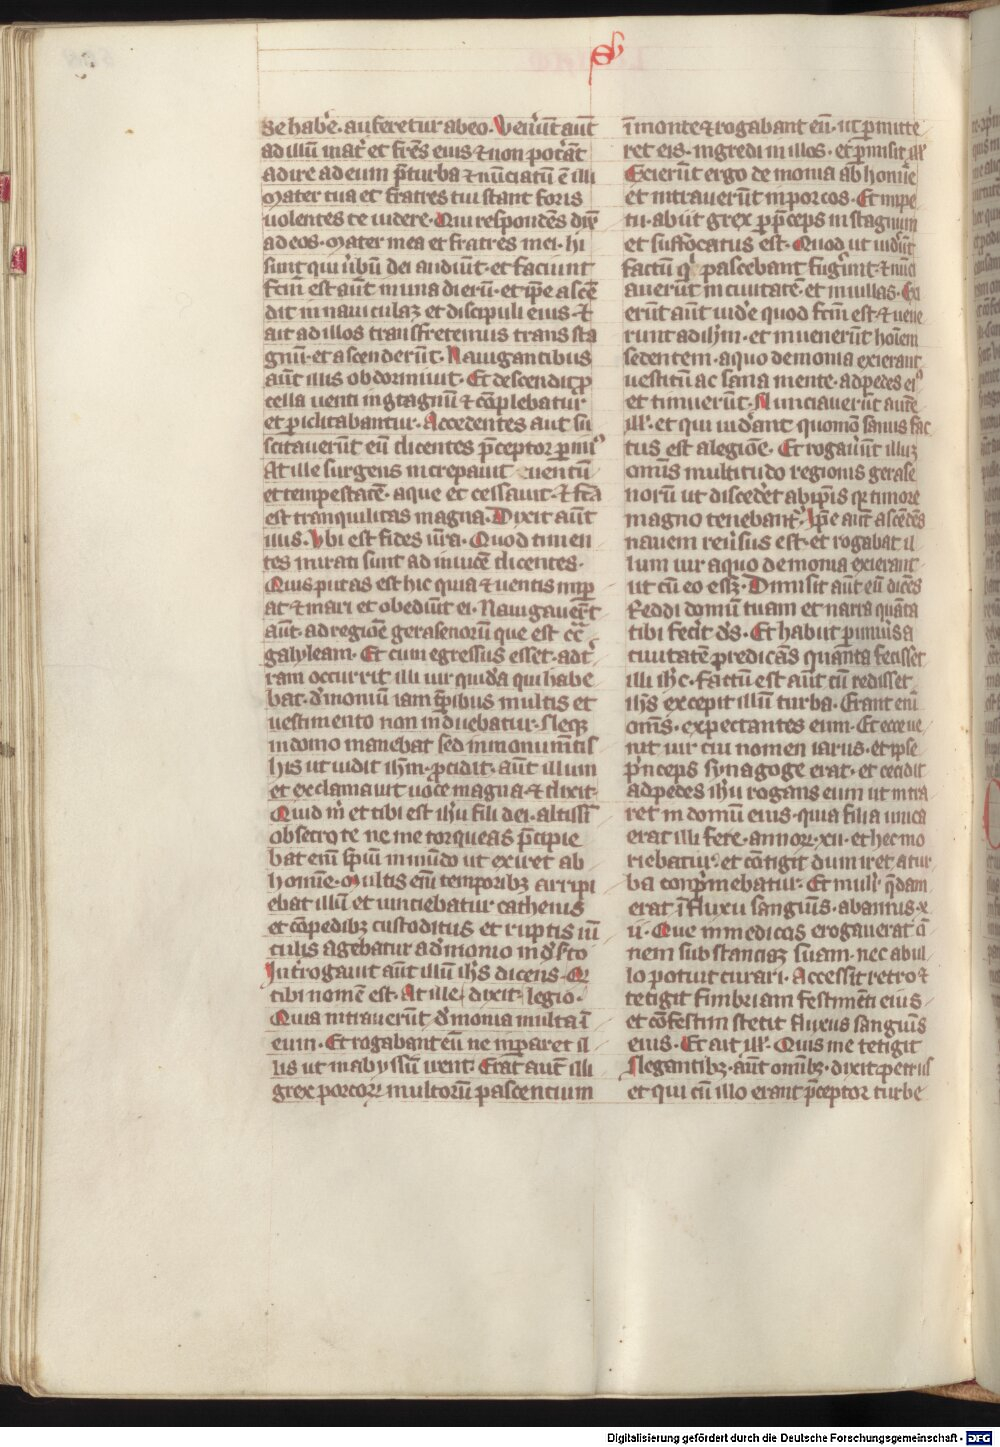 S
se hab̄e. auferetur ab eo. Veneru̅t aut̅
ad illū mat̅ et fr̅es eius ⁊ non pot̅ant
adire ad eum p̅ turba ⁊ nūciatum ē illi
Mater tua et fratres tui stant foris
volentes te videre. Qui respondēs dix̅
ad eos. Mater mea et fratres mei. hi
sunt qui ūbū dei audiūt. et faciunt
fcm̄ est aūt in una dierū. et ip̅e ascē
dit in naviculaꝫ et discipuli eius. ⁊
ait ad illos transfretemus trans sta
gnū. et ascenderūt. Navigantibus
aūt illis obdormiuit. Et descendit ꝓ
cella venti in stagnū ⁊ cōplebatur
et ꝑiclitabantur. Accedentes aūt su
scitaverūt eū dicentes p̅ceptor ꝑim⁹
At ille surgens increpauit ventū
et tempestatē. aque et cessauit. ⁊ fc̅a
est tranquilitas magna. Dixit aūt
illis. Vbi est fides v̅ra. Quod timen
tes mirati sunt ad invicē dicentes.
Quis putas est hic quia ⁊ ventis imꝑ
at ⁊ mari et obediūt ei. Navigauer̅t
aūt. ad regiōe gerasenorū que est cc̅a
galyleam. Et cum egressus esset. ad t̅
ram occurrit illi vir quid̅a qui habe
bat. d̅monium iam t̅pibus multis et
vestimento non induebatur. Neqꝫ
in domo manebat sed in monum̅tis
his ut vidit ih̅m. ꝓcidit. aūt illum
et exclamavit voce magna. ⁊ dixit.
Quid m̅ et tibi est ih̅u fili dei. altissi̅
obsecro te ne me torqueas p̅cipie
bat eni̅ sp̅ui inmūdo ut exiret ab
homi̅e. Multis eni̅ temporibꝫ arripi
ebat illū et vinciebatur cathenis
et cōpedibꝫ custoditus et ruptis vi̅
culis agebatur a d̅monio in d̅s̅to
Int̅rogavit aūt illū ih̅s dicens. Qꝛ
tibi nomē est. At ille dixit. legio.
Quia intraverūt d̅monia multa i̅
eum. Et rogabant eū ne inꝑaret il
lis ut in abyssū irent. Erat aūt illi
grex porcoꝝ multorū pascentium
i̅ monte ⁊ rogabant eū. ut ꝑmitte
ret eis. ingredi in illos. et ꝑmisit ill̅
Exierūt ergo demonia ab homi̅e
et intraverūt in porcos. Et impe
tu. abiit grex ꝑ p̅ceps in stagnum
et suffocatus est. Quod ut vid̅ūt
factū q̅ pascebant fug̅unt. ⁊ nūci
averūt in civitatē. et in villas. Exi
erūt aūt vid̅e quod fcm̄ est ⁊ vene
runt ad ih̅m. et invenerūt hoi̅em
sedentem. a quo demonia exierant
vestitū ac sana mente. ad pedes ei⁹
et timuerūt. Nunciaverūt autē
ill̅. et qui vid̅ant quomō sanus fac
tus est a legiōe. Et rogaūūt illuꝫ
om̅is multitudo regionis gerase
norū ut disced̅et ab ip̅is qꝛ timore
magno tenebant̅. Ip̅e aūt ascēdēs
navem reūsus est. et rogabat il
lum vir a quo demonia exierant
ut cū eo eēt. Dimisit aūt eū dicēs
Reddi domū tuam et narra quāta
tibi fecit d̅s. Et habiit ꝑ univ̅sā
civitatē predicās quanta fecisset
illi ih̅c. Factū est aūt cū redisset
ih̅s excepit illū turba. Erant eni̅
om̅s. expectantes eum. Et ecce ve
nit vir cui nomen iarus. et ipse
p̅nceps synagoge erat. et cecidit
ad pedes ih̅u rogans eum ut intra
ret in domū eius. quia filia unica
erat illi fere. annoꝝ. xii. et hec mo
riebatur. et cōtigit dum iret a tur
ba conp̅mebatur. Et muli̅ q̅dam
erat i̅ fluxu sanguis̅. ab annis. x
ii. Que in medicos erogauerat ō
nem substanciaꝫ suam. nec ab ul
lo potuit curari. Accessit retro ⁊
tetigit fimbriam festim̅ti eius
et cōfestim stetit fluxus sanguis̅
eius. Et ait ih̅s. Quis me tetigit
Negantibꝫ. aūt om̅ibꝫ. dixit petrus
et qui cū illo erant p̅ceptor turbe
Digitalisierung gefördert durch die Deutsche Forschungsgemeinschaft - DFG